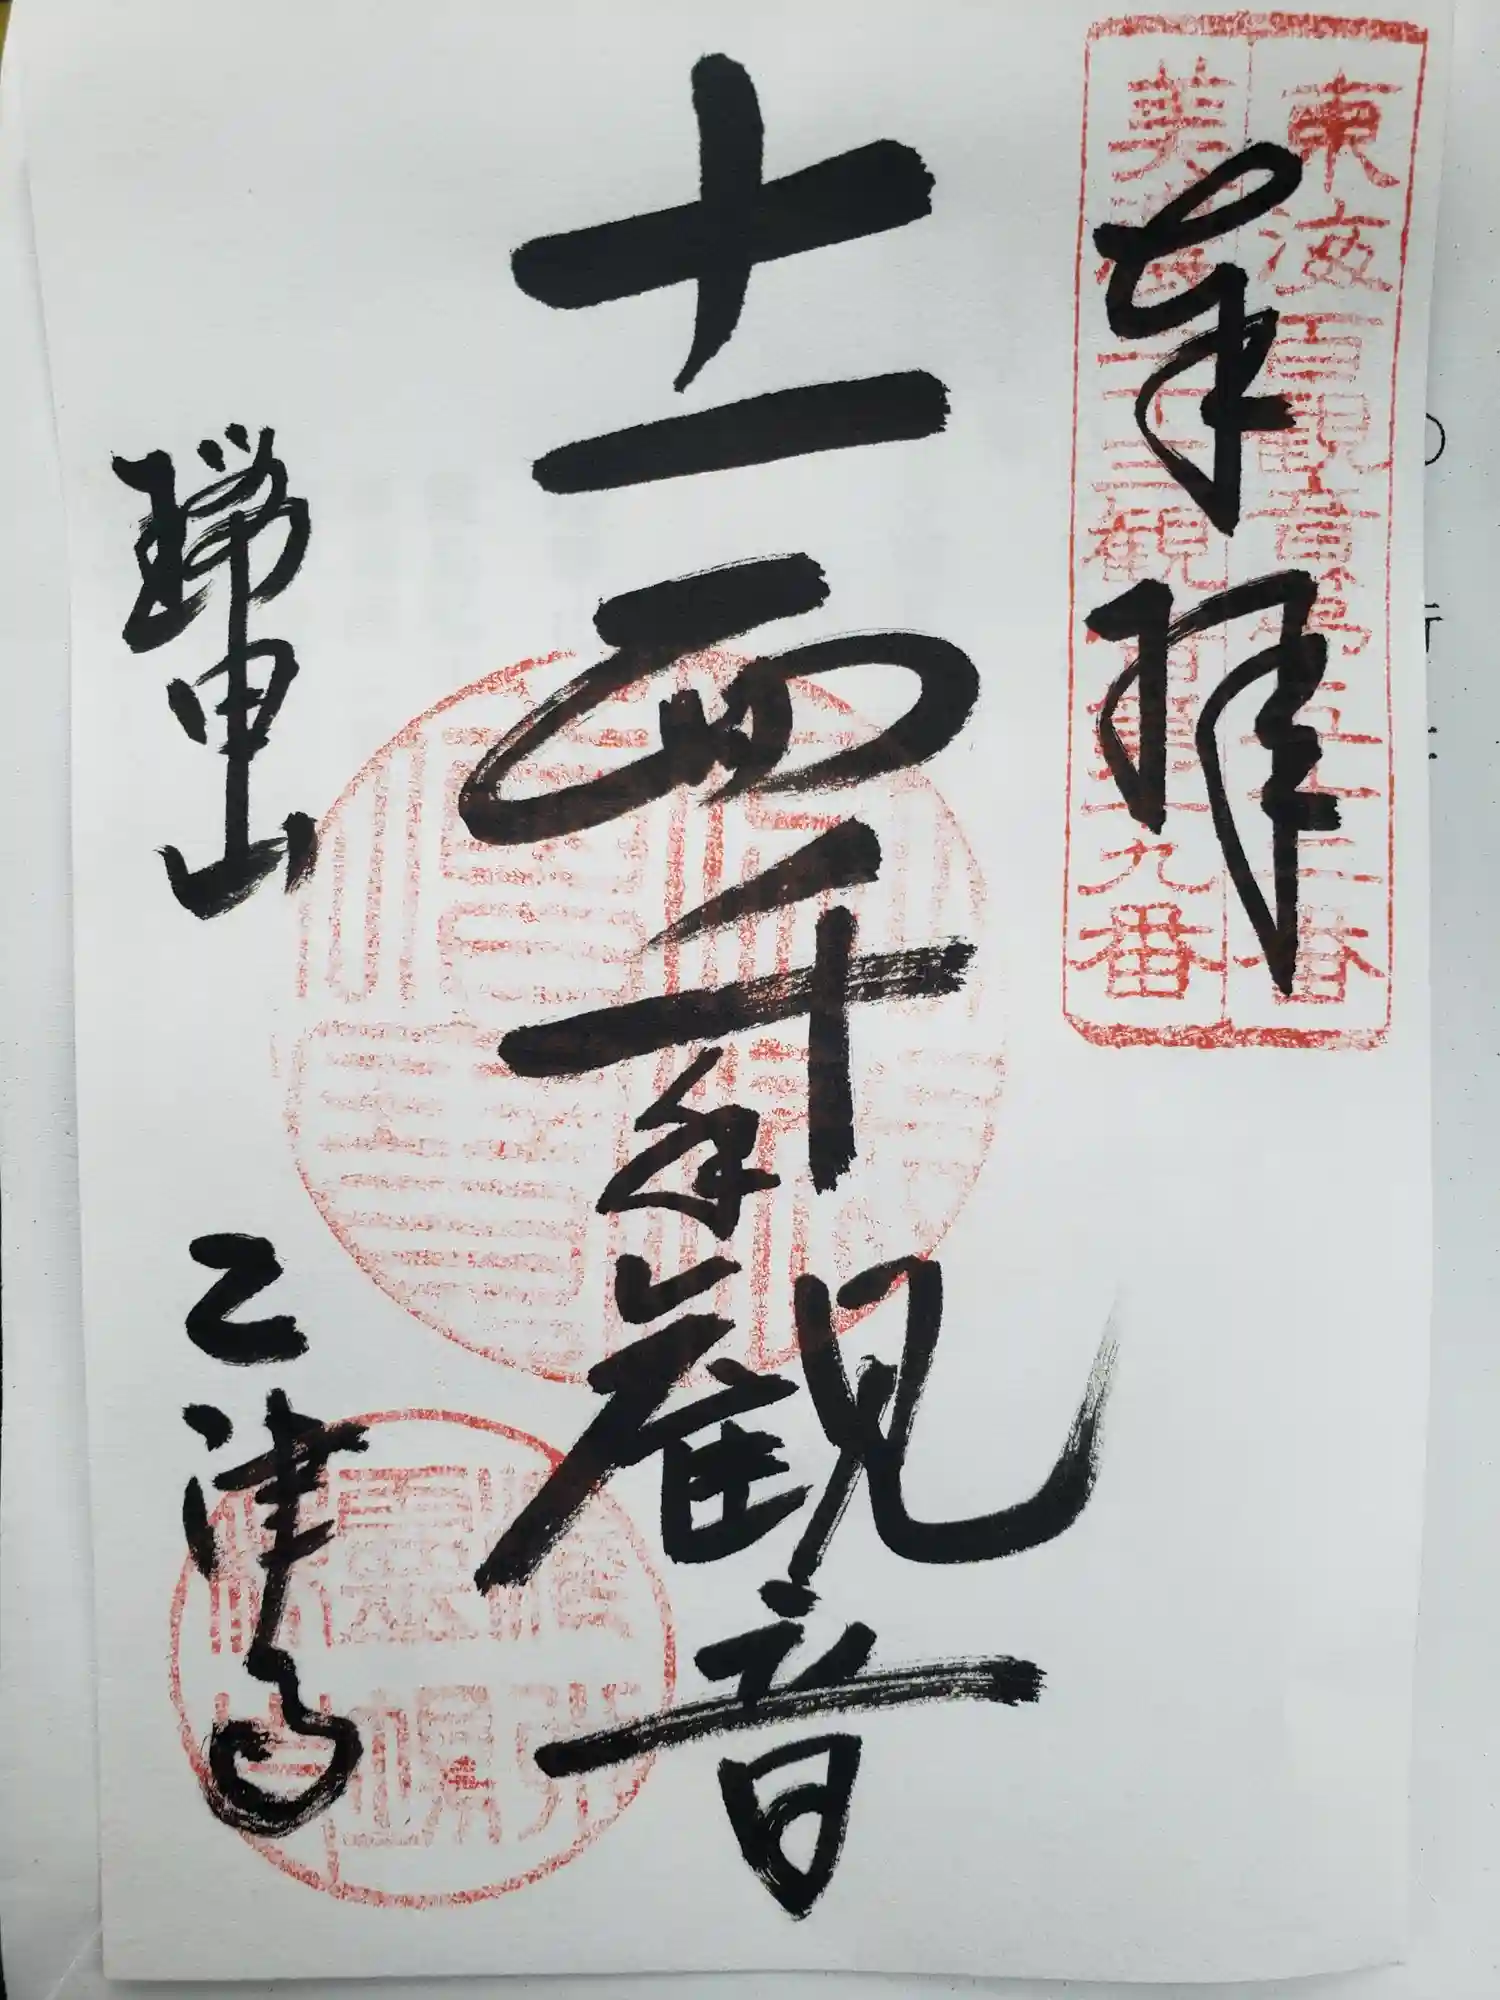 東海百観音第五十二番
美濃三十三観音第十九番
奉拝
十一面千手観音
瑞甲山 乙津寺